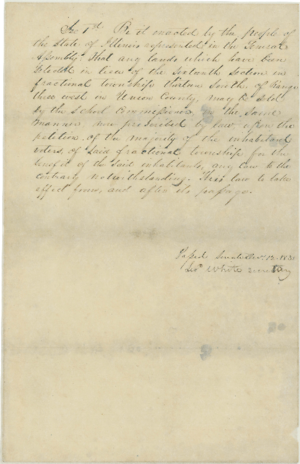 Sec 1st Be it enacted by the people of
the State of Illinois represented in the General
Assembly That any lands which have been
selected in lieu of the Sixteenth Section in
fractional township thirteen South of range
three west in Union County, may be sold
by the School Commissioner in the same
manner now prescribed by law upon the
petition of the majority of the inhabitant
voters of said fractional township for the
benefit of the said inhabitants, any law to the
contrary notwithstanding. This law to take
effect from and after its passage.
Passed Senate
Leo White secretary